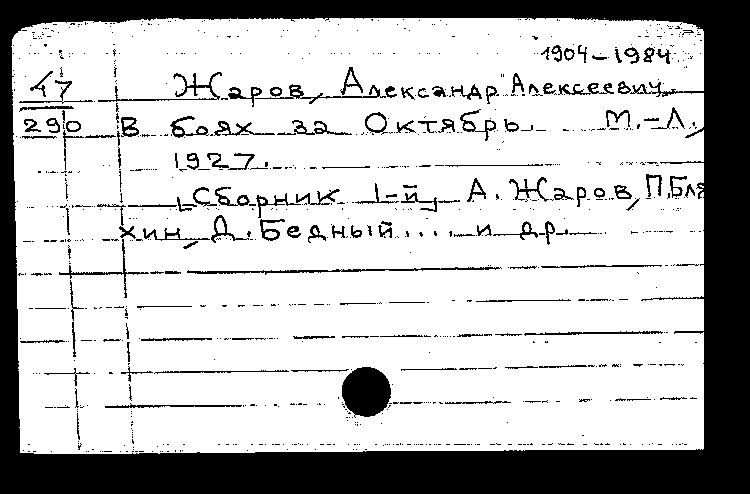 1904-1984
47 Жаров, Александр Алексеевич.
290 В боях за Октябрь. М.-Л.,
1927.
[Сборник 1-й] А. Жаров, П. Бля
хин, Д. Бедный.... и др.